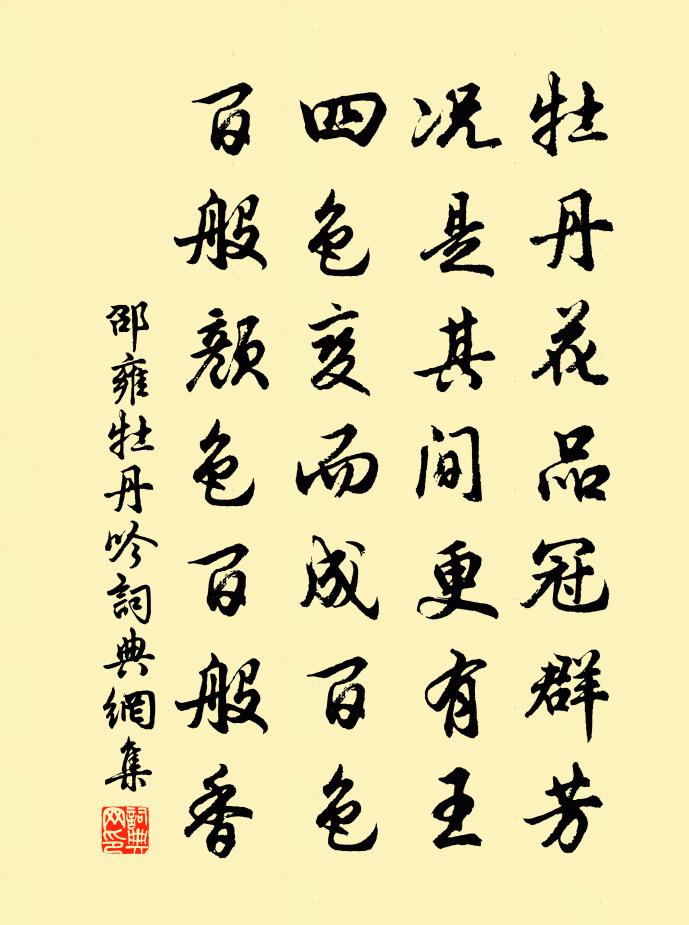 牡丹花品冠群芳
况是其间更有王
四色变而成百色
百般颜色百般香
邵雍牡丹吟詞典網集
詞典网印